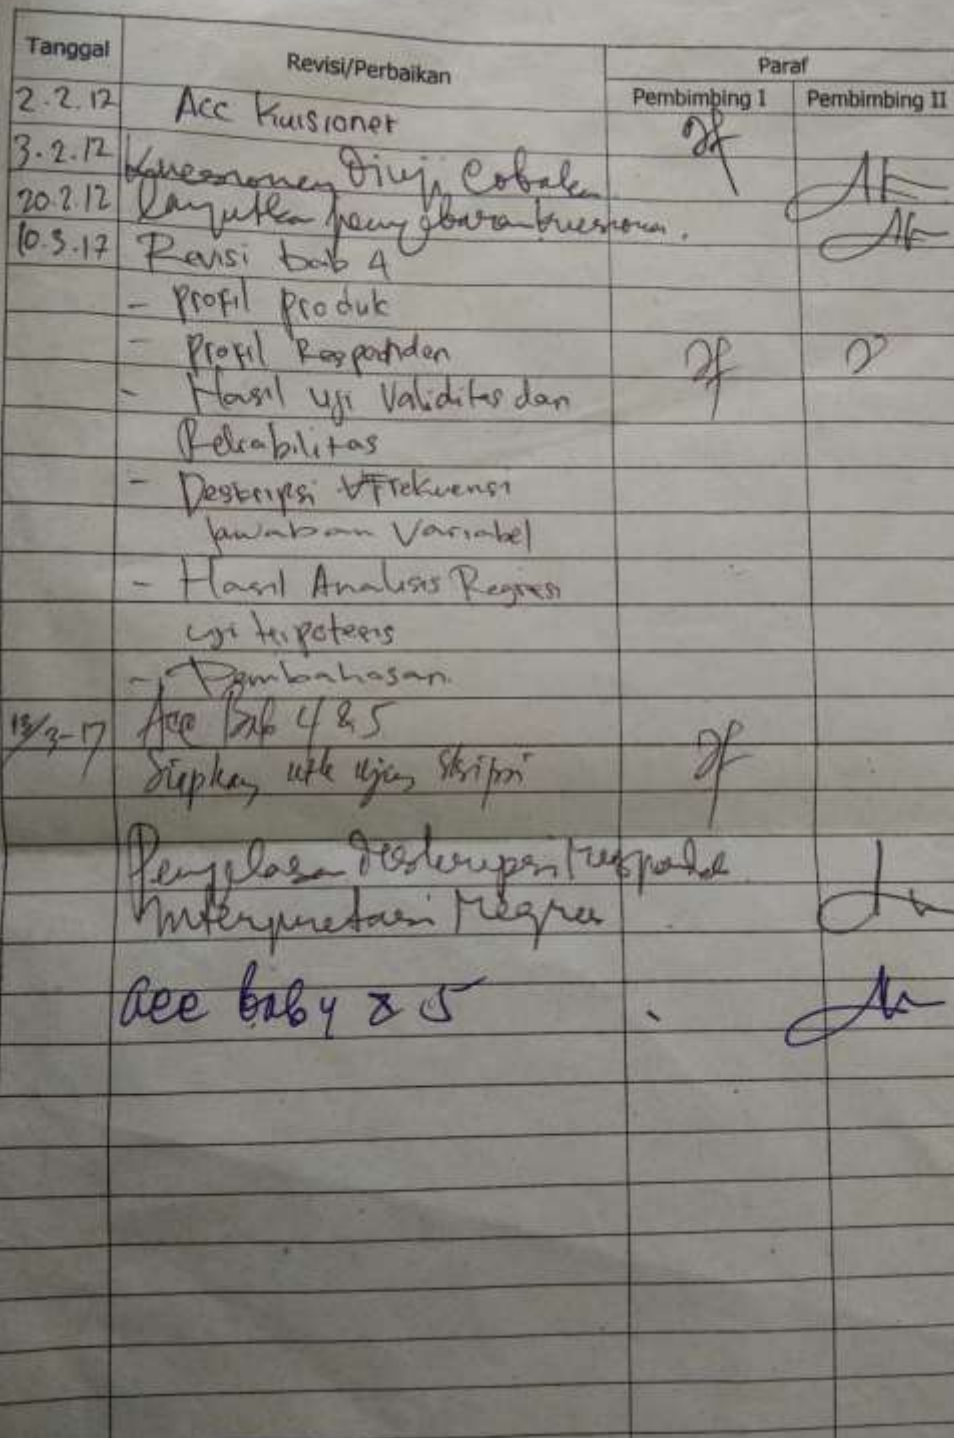 Tanggal Revisi/Perbaikan Paraf
Pembimbing I Pembimbing II
2.2.17 Acc Kuisioner
3.2.17 Kuesioner Diuji Cobakan
20.2.17 lanjutkan penyebaran kuesioner.
10.3.17 Revisi bab 4
- Profil Produk
- Profil Responden
- Hasil uji Validitas dan
Reliabilitas
- Deskripsi Frekuensi
Jawaban Variabel
- Hasil Analisis Regresi
uji hipotesis
- Pembahasan.
13/3-17 Acc Bab 4 & 5
Siapkan utk ujian Skripsi
Penjelasan Deskripsi respoden
Interpretasi regresi
acc bab 4 & 5